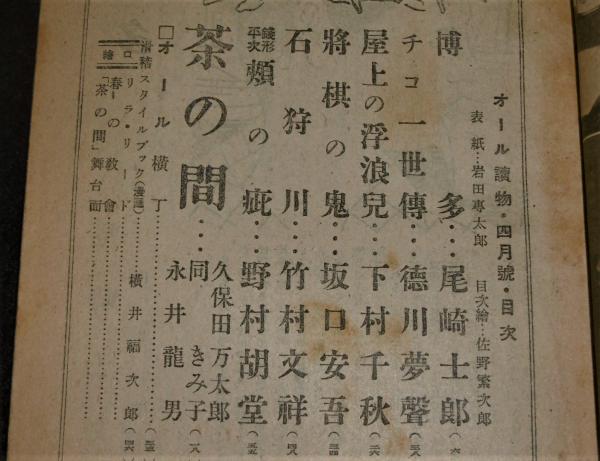 オール讀物・四月號・目次
表紙…岩田專太郎
目次繪…佐野繁次郎
博多…尾崎士郎(六
チコ一世傳…德川夢聲(
屋上の浮浪兒…下村千秋(二六
將棋の鬼…坂口安吾(三四
石狩川…竹村文祥(四八
錢形平次 頰の疵…野村胡堂(五五
茶の間…久保田万太郎
同きみ子(一八
□オール橫丁……永井龍男
滑稽スタイルブック(漫畫)…橫井福次郎(四六
口繪
リラ・リード
春の敎會
「茶の間」舞台面